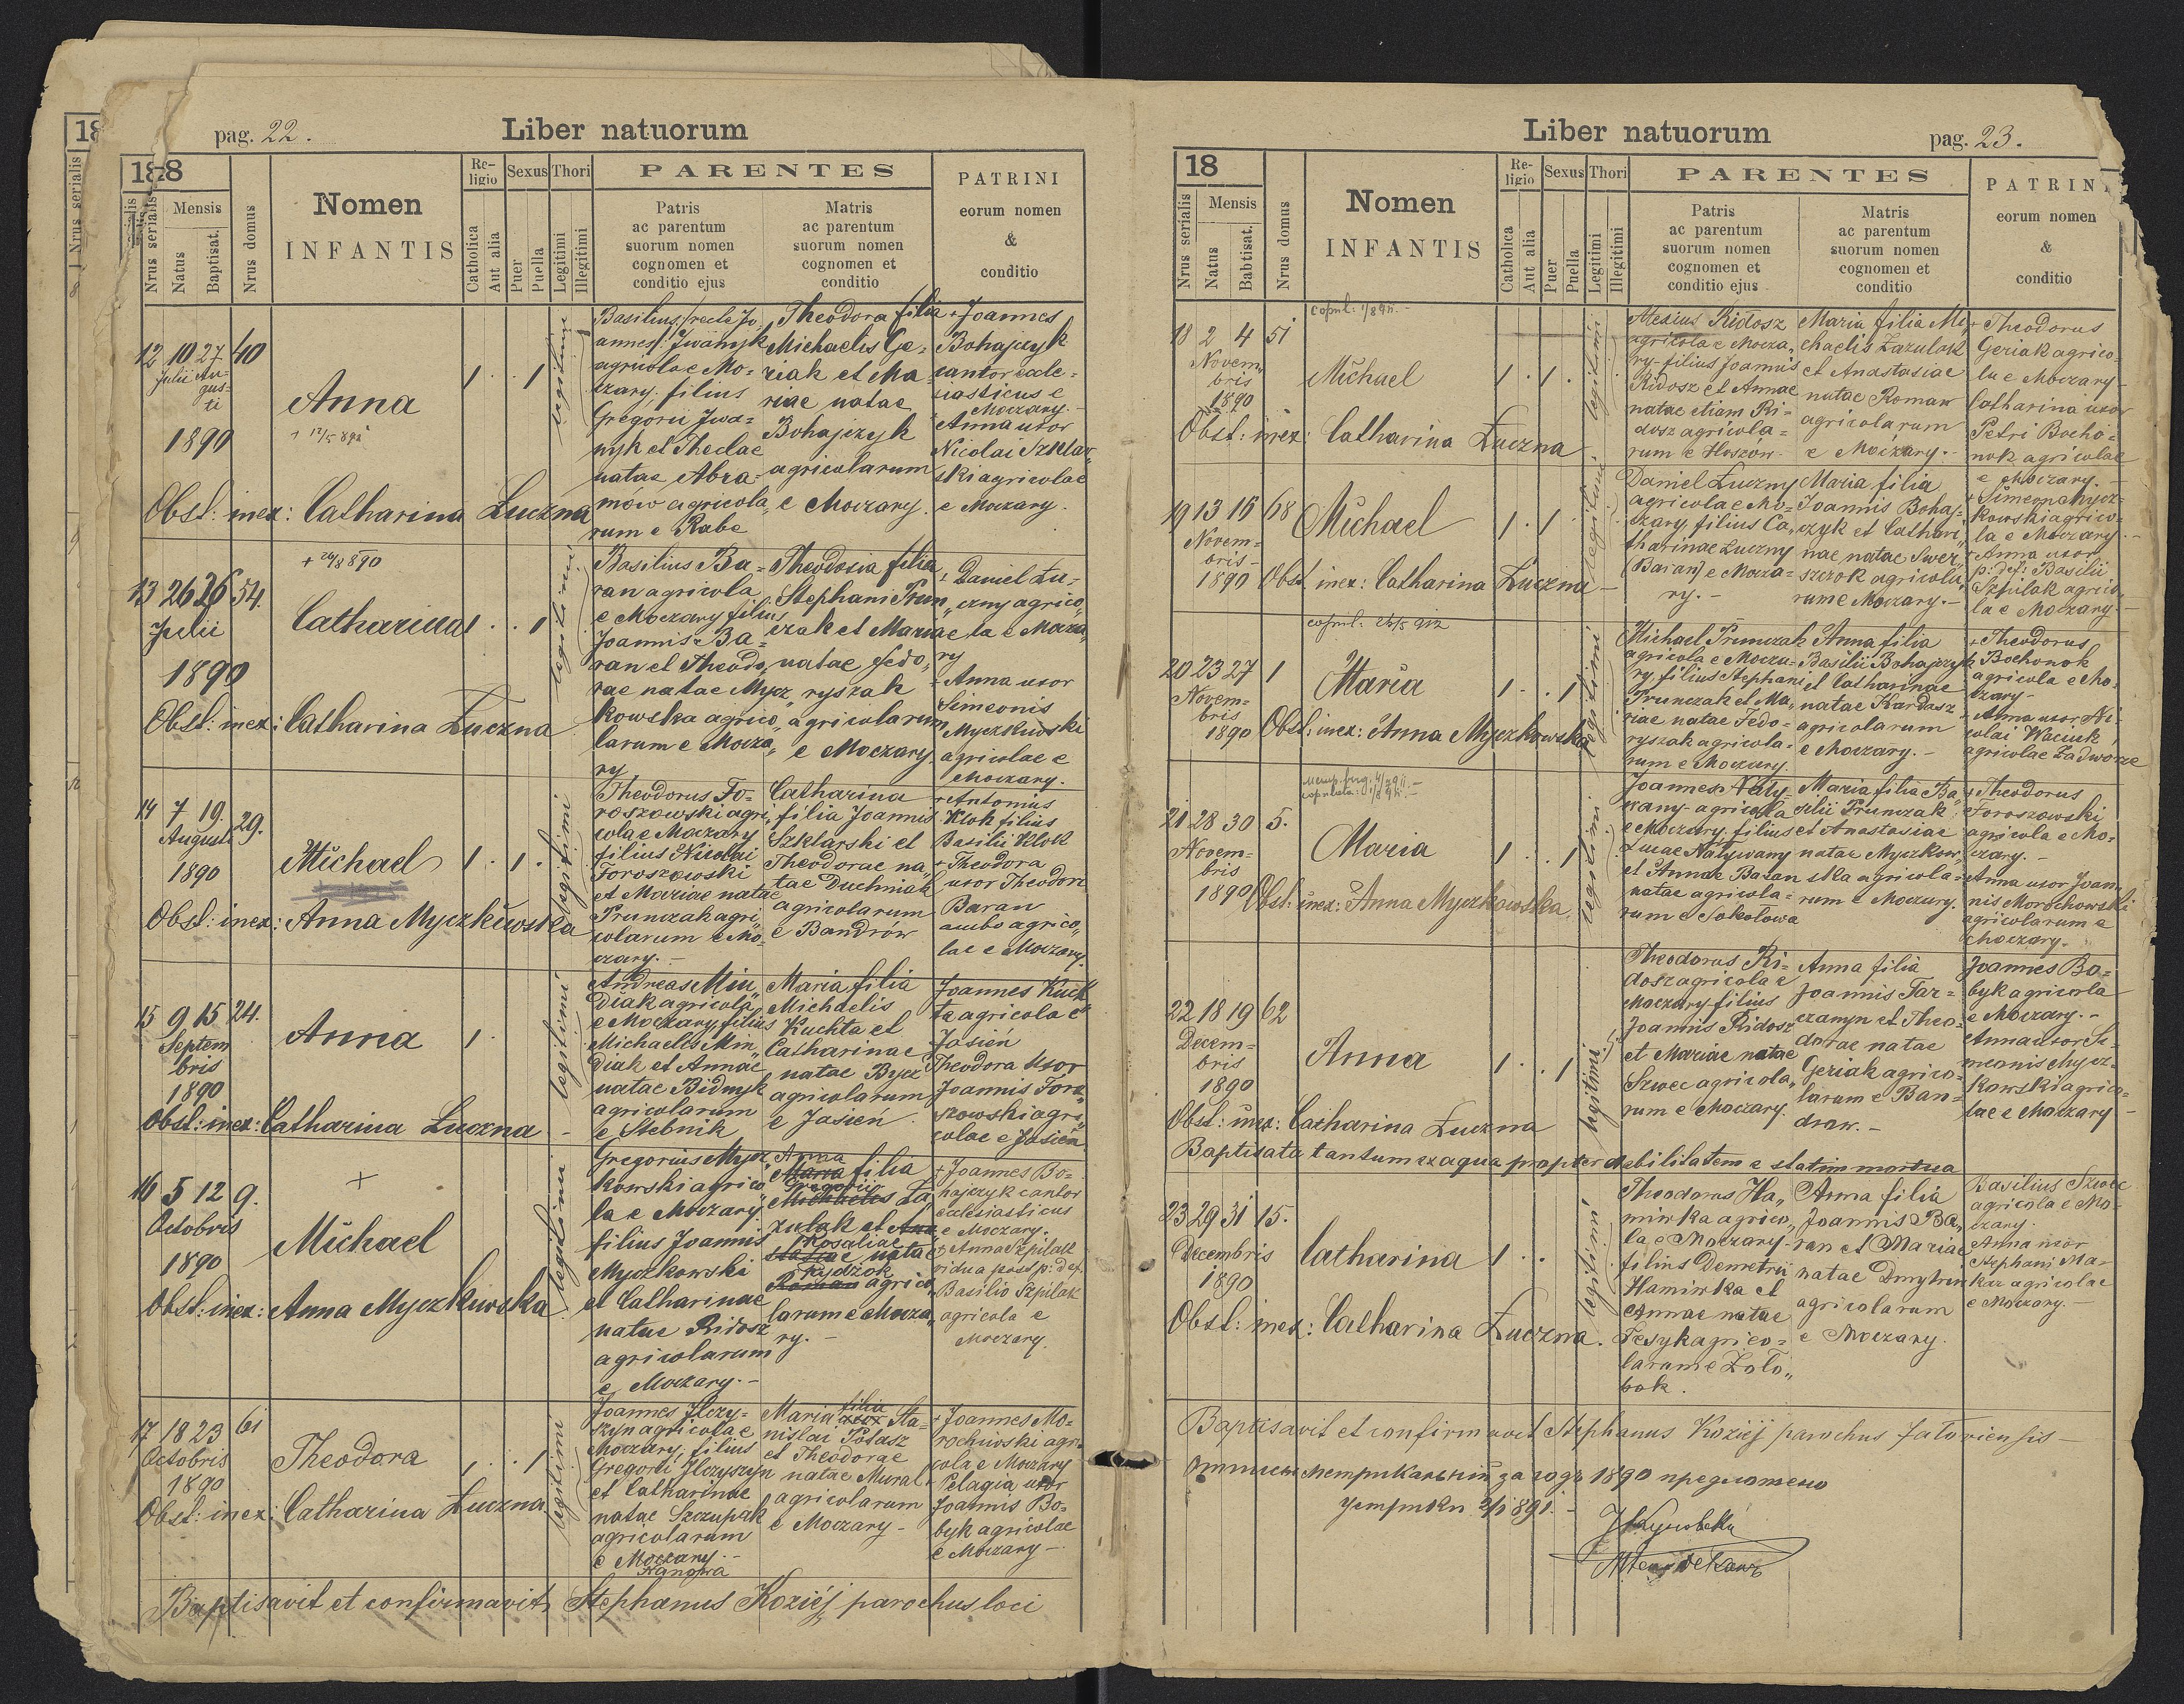 pag. 22.
Liber natuorum
188
Nrus serialis
Mensis
Natus
Baptisat.
Nrus domus
Nomen
INFANTIS
Religio
Catholica
Aut alia
Sexus
Puer
Puella
Thori
Legitimi
Illegitimi
PARENTES
Patris
ac parentum
suorum nomen
cognomen et
conditio ejus
Matris
ac parentum
suorum nomen
cognomen et
conditio
PATRINI
eorum nomen
&
conditio
12 10 27 40
Julii Au=
gus=
ti
1890
Anna
+ 12/5 892
1 . . 1
legitimi
Obst: inex: Catharina Łuczna
Basilius (recte Jo
annes) Iwanyk
agricola e Mo=
czary, filius
Gregorii Iwa=
nyk et Theclae
natae Abra=
mów agricola
rum e Rabe
Theodora filia
Michaelis Ge=
riak et Ma=
riae natae
Bohajczyk
agricolarum
e Moczary.
+ Joannes
Bohajczyk
cantor eccle=
siasticus e
Moczary.-
Anna uxor
Nicolai Szklar
ski agricolae
e Moczary.
13 26 26 54.
Julii
1890
+ 26/8 890
Catharina
1 . . 1
legitimi
Obst: inex: Catharina Łuczna
Basilius Ba=
ran agricola
e Moczary filius
Joannis Ba=
ran et Theodo
rae natae Mycz
kowska agrico
larum e Mocza
ry
Theodosia filia
Stephani Prun
czak et Mariae
natae Fedo
ryszak
agricolarum
e Moczary
+ Daniel Łu=
czny agrico
la e Mocza
ry
Anna uxor
Simeonis
Myczkiwski
agricolae e
Moczary.
14 7 19. 29.
Augusti
1890
Michael
1 . 1 .
legitimi
Obst: inex: Anna Myczkiwska
Theodorus Fo=
roszowski agri
cola e Moczary
filius Nicolai
Foroszowski
et Mariae natae
Prunczak agri
colarum e Mo=
czary.-
Catharina
filia Joannis
Szklarski et
Theodorae na
tae Duchniak
agricolarum
e Bandrów
+ Antonius
Klok filius
Basilii Klok
+ Theodora
uxor Theodori
Baran
ambo agrico
lae e Moczary.
15 9 15 24.
Septem
bris
1890
Anna
1 .
legitimi
Obst: inex: Catharina Łuczna
Andreas Min
diak agricola
e Moczary filius
Michaelis Min
diak et Annae
natae Bidnyk
agricolarum
e Stebnik
Maria filia
Michaelis
Kuchta et
Catharinae
natae Bycz
agricolarum
e Jasień
Joannes Kuch
ta agricola e
Jasień
Theodora uxor
Joannis Foro
szowski agri
colae e Jasień
16 5 12 9.
Octobris
1890
+
Michael
legitimi
Obst: inex: Anna Myczkiwska
Gregorius Mycz
kowski agrico
la e Moczary
filius Joannis
Myczkowski
et Catharinae
natae Ridosz
agricolarum
e Moczary.-
Anna
Maria filia
Gregorii
Michaelis Ła
zulak et Ana
Rosaliae
stasiae natae
Roman agrico
larum e Mocza
ry.-
+ Joannes Bo=
hajczyk cantor
ecclesiasticus
e Moczary.
+ Anna Szpilak
vidua post p: def.
Basilio Szpilak
agricola e
Moczary.
17 18 23 61
Octobris
1890
Theodora
1 . . 1
legitimi
Obst: inex: Catharina Łuczna
Joannes Ilczy=
szyn agricola e
Moczary, filius
Gregorii Ilczyszyn
et Catharinae
natae Szczupak
agricolarum
e Moczary.-
Maria filia
uxor Sta=
nislai Potasz
et Theodorae
natae Mural
agricolarum
e Moczary -
+ Joannes Mo=
rochiwski agri
cola e Moczary
+ Pelagia uxor
Joannis Bo=
byk agricolae
e Moczary -
Baptisavit et confirmavit Stephanus Koziéj parochus loci
Liber natuorum
pag. 23.
18
Nrus serialis
Mensis
Natus
Babtisat.
Nrus domus
Nomen
INFANTIS
Religio
Catholica
Aut alia
Sexus
Puer
Puella
Thori
Legitimi
Illegitimi
PARENTES
Patris
ac parentum
suorum nomen
cognomen et
conditio ejus
Matris
ac parentum
suorum nomen
cognomen et
conditio
PATRIN
eorum nomen
&
conditio
18 2 4 51
Novem
bris
1890
Michael
1 . 1 .
legitimi
Obst: inex: Catharina Łuczna
Alexius Ridosz
agricola e Mocza
ry filius Joannis
Ridosz et Annae
natae etiam Ri=
dosz agricola=
rum e Hoszów.
Maria filia Mi
chaelis Łazulak
et Anastasiae
natae Roman
agricolarum
e Moczary.-
+ Theodorus
Geriak agrico=
la e Moczary -
Catharina uxor
Petri Bocho=
nok agricolae
e Moczary.-
19 13 16 68
Novem=
bris-
1890
Michael
1 . 1
legitimi
Obst inex: Catharina Łuczna
Daniel Łuczny
agricola e Mo=
czary filius Ca
tharinae Łuczny
(Baran) e Mocza=
ry.-
Maria filia
Joannis Bohaj=
czyk et Cathari
nae natae Swer
szczok agricola
rum e Moczary.-
+ Simeon Mycz=
kowski agrico=
la e Moczary.-
+ Anna uxor
p: def: Basilii
Szpilak agrico
lae e Moczary.-
20 23 27 1
Novem=
bris
1890
Maria
1 . . 1
legitimi
Obst: inex: Anna Myczkowska
Michael Prunczak
agricola e Mocza=
ry filius Stephani
Prunczak et Ma
riae natae Fedo=
ryszak agricola=
rum e Moczary.
Anna filia
Basilii Bohajczyk
et Catharinae
natae Kardasz
agricolarum
e Moczary.-
+ Theodorus
Bochonok
agricola e Mo
czary-
+ Anna uxor Ni
colai Waciuk
agricolae Zadworze
21 28 30 5.
Novem=
bris
1890
Maria
1 . . 1
legitimi
Obst: inex: Anna Myczkowska
Joannes Naty=
wany agricola
e Moczary, filius
Lucae Natywany
et Annae Bazan
natae agricola=
rum e Sokolowa
Maria filia Ba
silii Prunczak
et Anastasiae
natae Myczkow
ska agricola=
rum e Moczary.
+ Theodorus
Foroszowski
agricola e Mo=
czary.-
Anna uxor Joan
nis Morochowski
agricolarum e
Moczary.
22 18 19 62
Decem=
bris
1890
Anna
1 . . 1
legitimi
Obst: inex: Catharina Łuczna
Theodorus Ri=
dosz agricola e
Moczary filius
Joannis Ridosz
et Mariae natae
Szwec agricola
rum e Moczary.
Anna filia
Joannis Tar=
czanyn et Theo=
dorae natae
Geriak agrico=
larum e Ban=
drow.-
Joannes Bo=
byk agricola
e Moczary.-
Anna uxor Si=
meonis Mycz=
kowski agrico=
lae e Moczary -
Baptisata tantum ex aqua propter debilitatem e statim mortua
23 29 31 15.
Decembris
1890
Catharina
1 . .
legitimi
Obst: inex: Catharina Łuczna.
Theodorus Ha
miwka agrico
la e Moczary-
filius Demetrii
Hamiwka et
Annae natae
Fesyk agrico=
larum e Zolo
bok.
Anna filia
Joannis Ba
ran et Mariae
natae Dmytren
agricolarum
e Moczary.
Basilius Szwec
agricola e Mo=
czary.
Anna uxor
Stephani Ma=
kar agricolae
e Moczary.-
Baptisavit et confirmavit Stephanus Koziéj parochus Jaloviensis
метрикальный за годъ 1890 предложено
Устрики 2/1 891.-